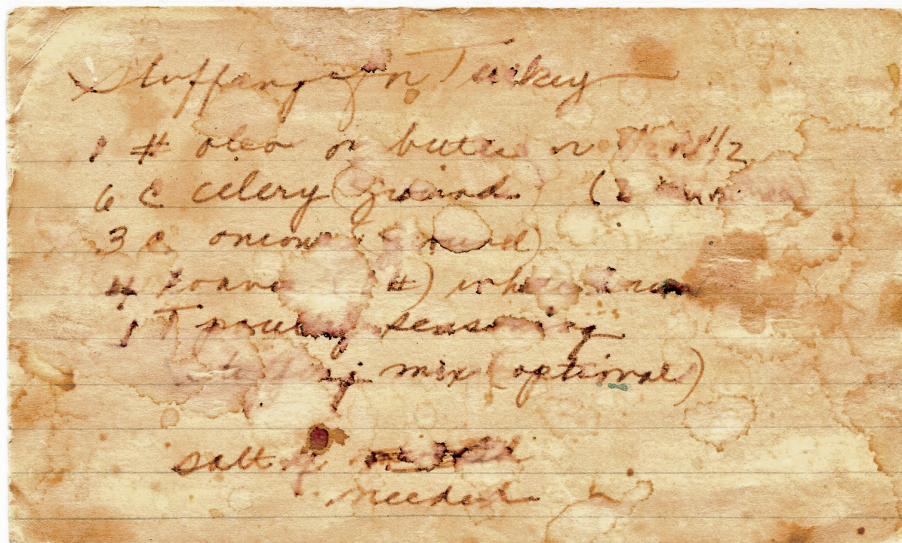 Stuffing for Turkey
1 # oleo or butter or 1/2 & 1/2
6 C celery ground (2
3 c. onions (ground)
4 loaves #) white
1 T poultry seasoning
mix (optional)
salt if
needed